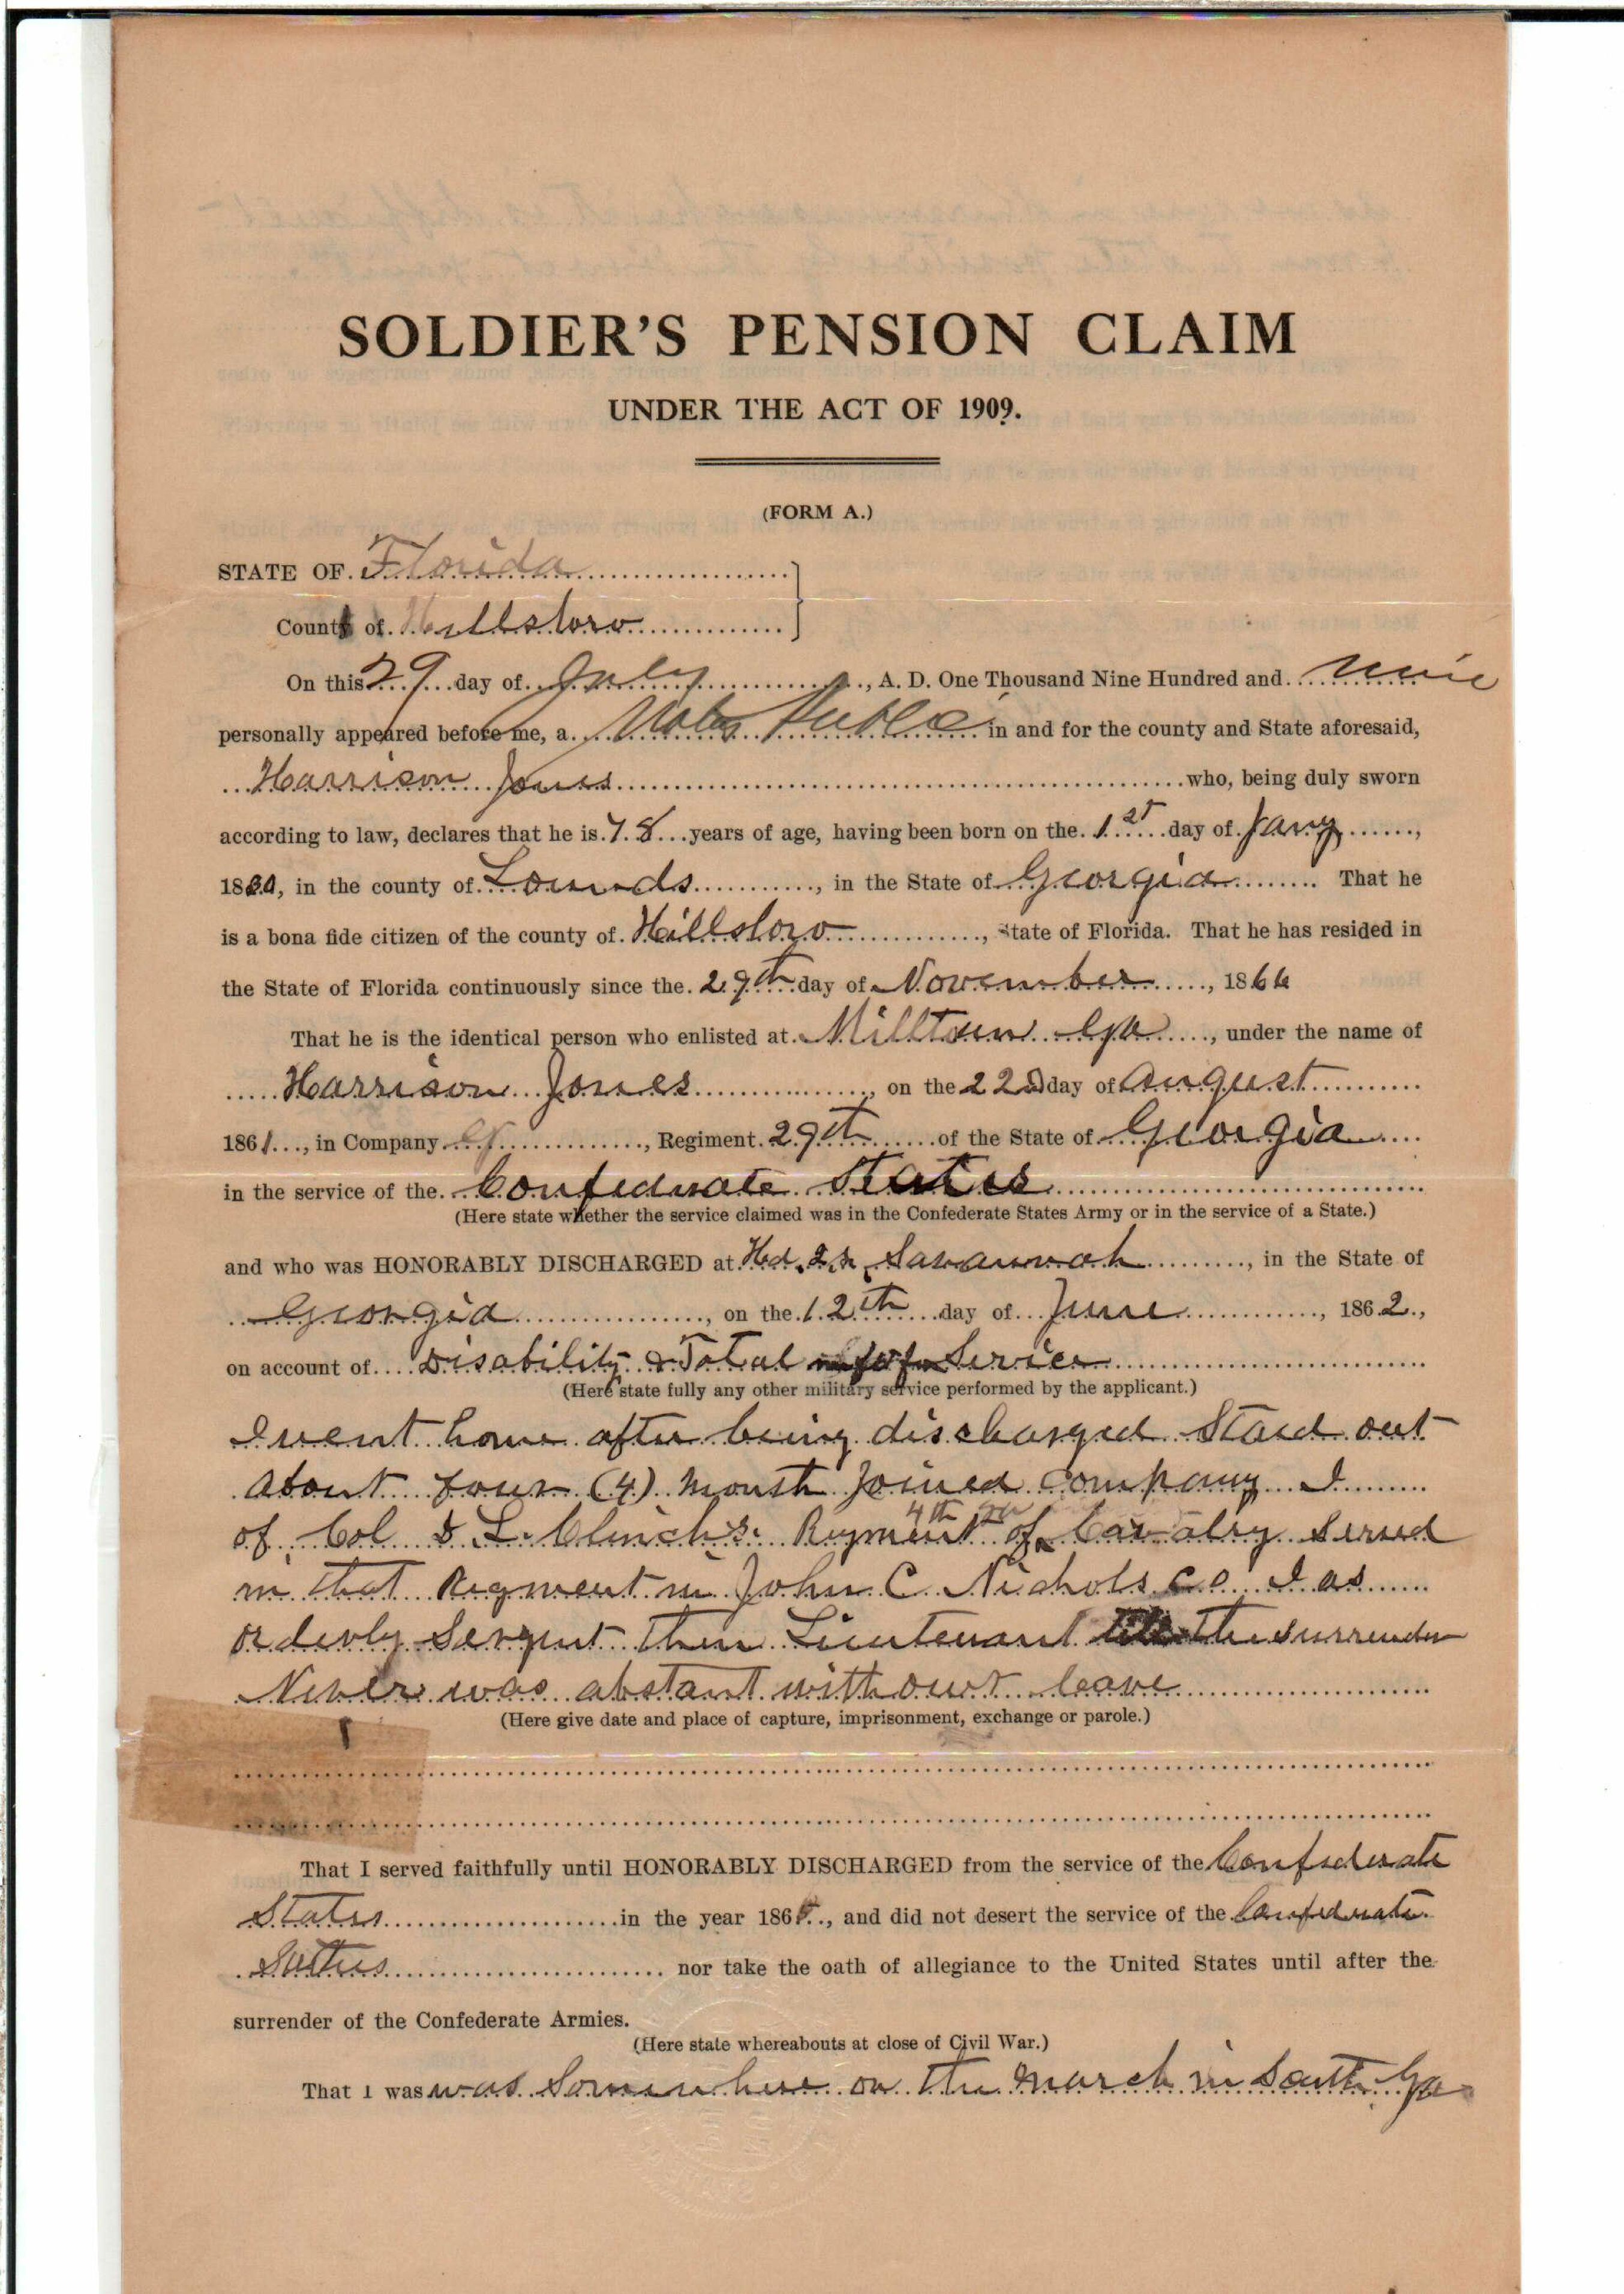 SOLDIER'S PENSION CLAIM
UNDER THE ACT OF 1909.
(FORM A.)
STATE OF Florida
County of Hillsboro
On this 29 day of July, A. D. One Thousand Nine Hundred and nine
personally appeared before me, a Notary Public in and for the county and State aforesaid,
Harrison Jones who, being duly sworn
according to law, declares that he is 78 years of age, having been born on the 1st day of Jany,
18, in the county of Lownds, in the State of Georgia That he
is a bona fide citizen of the county of Hillsboro, State of Florida. That he has resided in
the State of Florida continuously since the 29th day of November, 1866
That he is the identical person who enlisted at Milltown Ga, under the name of
Harrison Jones, on the 22d day of August
1861, in Company, Regiment 29th of the State of Georgia
in the service of the Confederate States
(Here state whether the service claimed was in the Confederate States Army or in the service of a State.)
and who was HONORABLY DISCHARGED at Hd. Qr. Savannah, in the State of
Georgia, on the 12th day of June, 1862,
on account of Disability & Total Service
(Here state fully any other military service performed by the applicant.)
I went home after being discharged Staid out
about four (4) month Joined company I
of Col D L. Clinch's. Regment 4th of Cavalry Served
in that Regment in John C. Nichols co I as
orderly Sergent then Lieutenant till the surrender
Never was abstant without leave
(Here give date and place of capture, imprisonment, exchange or parole.)
That I served faithfully until HONORABLY DISCHARGED from the service of the Confederate
States in the year 1865, and did not desert the service of the Confederate
Sattes nor take the oath of allegiance to the United States until after the
surrender of the Confederate Armies.
(Here state whereabouts at close of Civil War.)
That I was was Somewhere on the march in South Ga